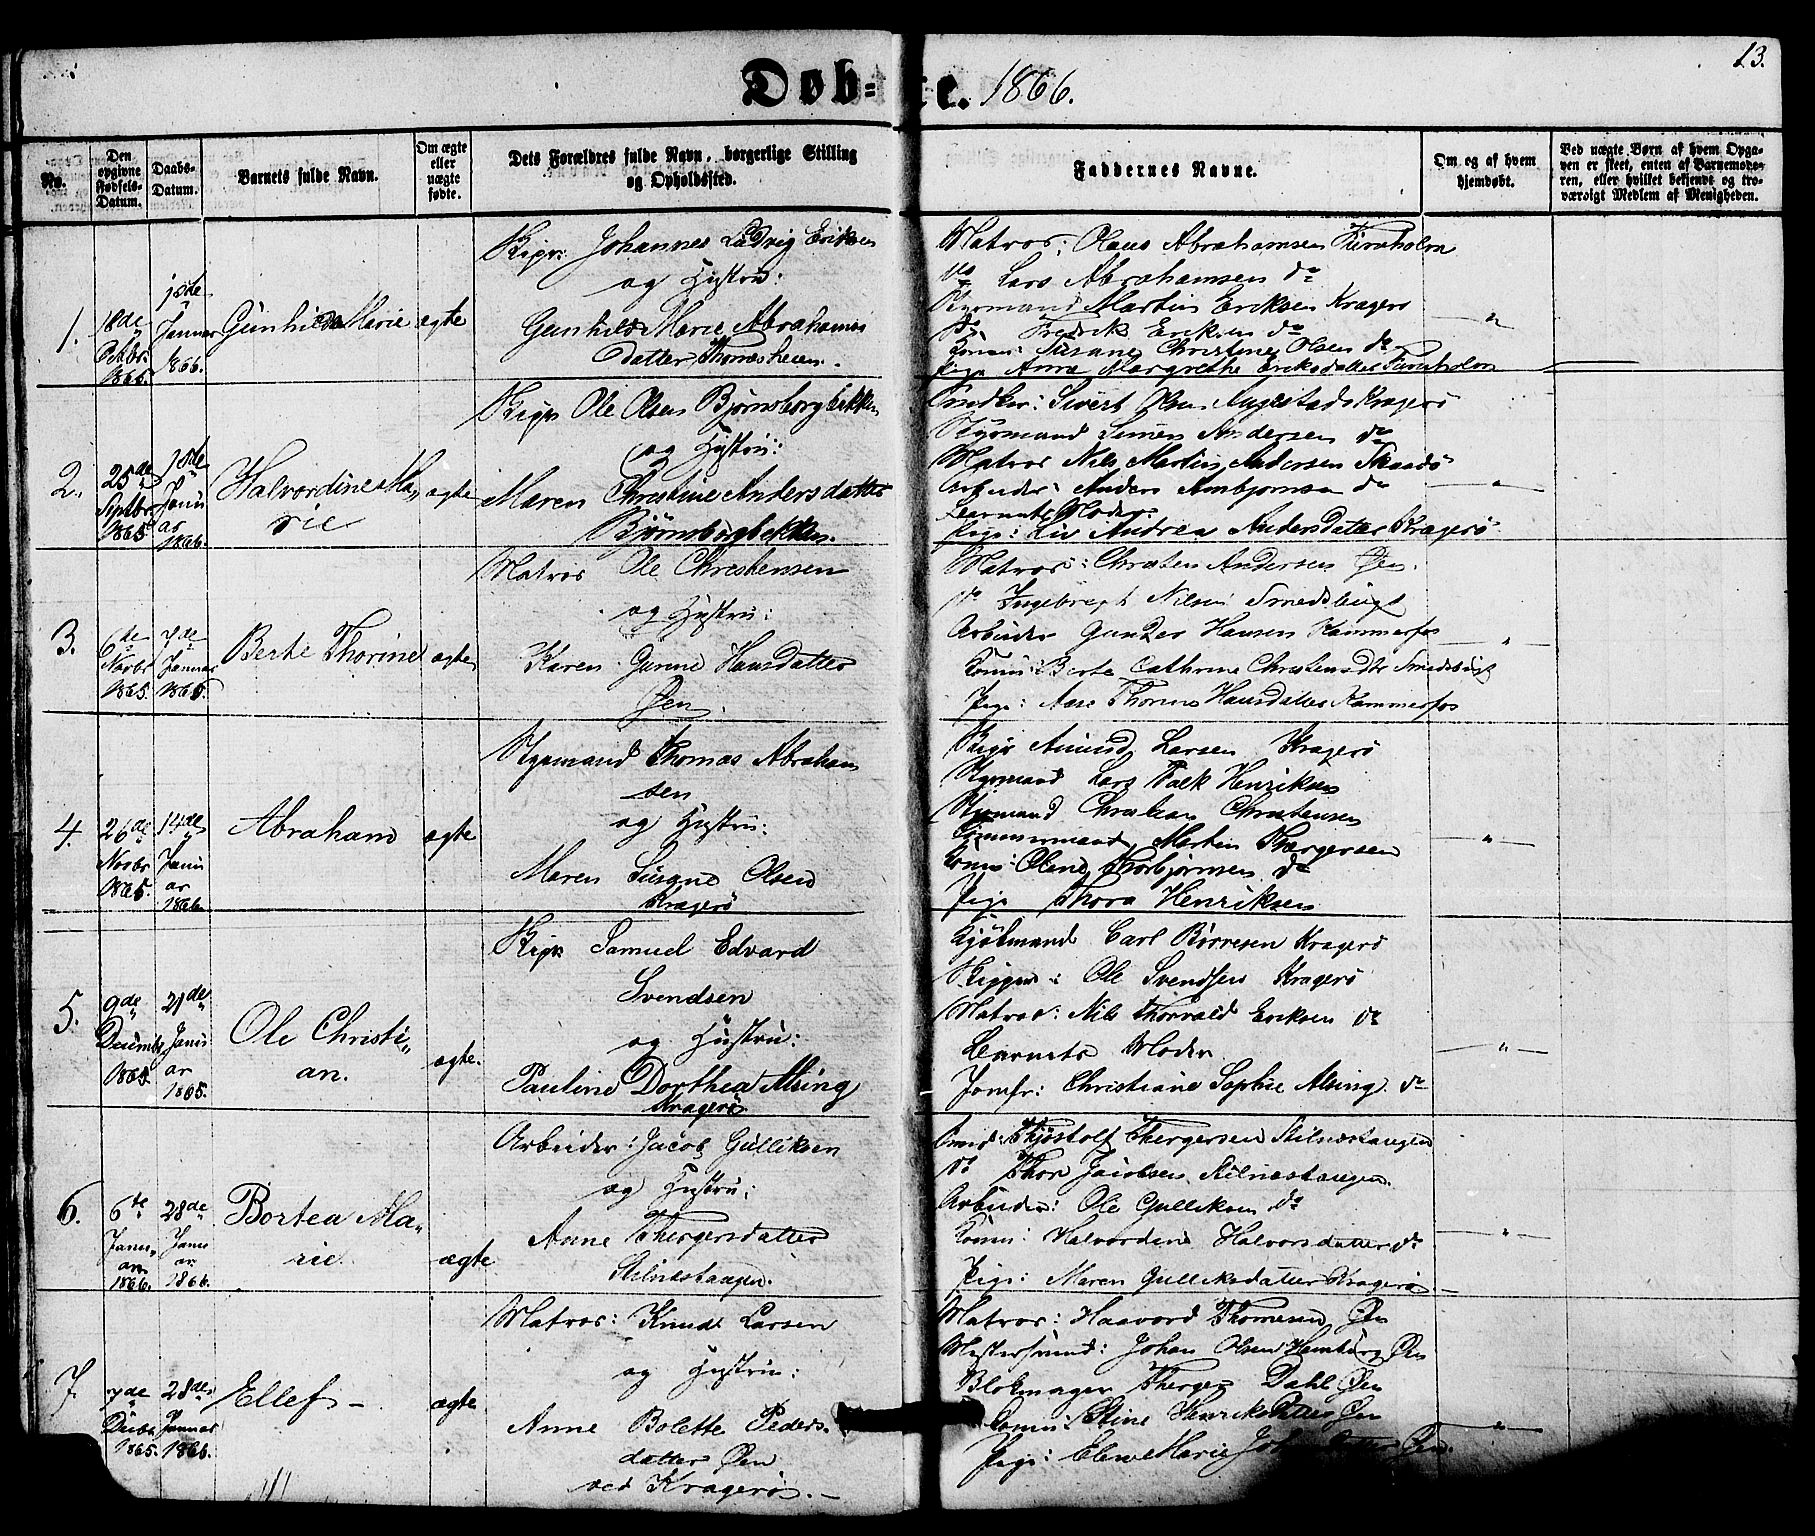 13.
Døb= e. 1866.
No.
Den opgivne Fødsels-Datum.
Daabs-Datum.
Barnets fulde Navn.
Om ægte eller uægte fødte.
Dets Forældres fulde Navn, borgerlige Stilling og Opholdssted.
Faddernes Navne.
Om og af hvem hjemdøbt.
Ved uægte Børn af hvem Opgaven er skeet, enten af Barnemoderen, eller hvilket bekjendt og troværdigt Medlem af Menigheden.
1.
18de Octbr. 1865.
Januar 1866.
Gunhild Marie
ægte
Skipr: Johannes Ludvig Eriksen
og Hustru:
Gunhild Marie Abrahams
datter
Matros: Olaus Abrahamsen Furuholm
do Lars Abrahamsen do
Styrmand Martin Eriksen Kragerø
do Fredrik Eriksen do
Konen: Susane Christine Olsen do
Pige Anne Margrethe Eriksdatter Furuholm
2.
25de Septbr 1865.
18de Januar 1866.
Halvordine Ma,
rie
ægte
Skipr Ole Olsen Bjørnsborgbekken
og Hustru:
Maren Christine Andersdatter
Bjørnsborgbekken.
Snedker: Sivert Olsen Kragerø
Styrmand Simen Andersen do
Matros Nils Martin Andersen Skaadø
Arbeider: Anders Ambjørnsen do
Barnets Moder.
Pige: Liv Andrea Andersdatter Kragerø
3.
6te Novbr 1865.
7de Januar
Berte Thorine
ægte
Matros Ole Christensen
og Hustru:
Karen Gunne Hansdatter
Øen.
Matros: Christen Andersen Øen.
do Ingebregt Nilsen Smedsbugt
Arbeider Gunder Hansen Kammerfos
Konen: Berte Cathrine Christensdtr Smedsbugt
Pige: Aase Thorine Hansdatter Kammerfos
4.
26de Novbr 1865.
14de Januar 1866.
Abraham
ægte
Styrmand Thomas Abraham
sen
og Hustru:
Maren Susane Olsen
Kragerø
Skipr Amund Larsen Kragerø
Styrmand Lars Falk Henriksen
Styrmand Christian Christensen
Tømmermand Martin Thergersen
Konen: Olene Thorbjørnsen do
Pige Thora Henriksen
5.
9de Decembr. 1865.
21de Januar 1865.
Ole Christi„
an.
ægte.
Skipr Samuel Edvard
Svendsen
og Hustru:
Pauline Dorthea Alsing
Kragerø
Kjøbmand Carl Børresen Kragerø
Skipper: Ole Svendsen Kragerø
Matros: Nils Thorvald Eriksen do
Barnets Moder
Jomfr: Christiane Sophie Alsing do
6.
6te Januar 1866.
28de Januar 1866.
Bortea Ma„
rie
ægte
Arbeider: Jacob Gulliksen
og Hustru:
Anne Thergersdatter
Stilnæstangen.
Thjøstolf Thergersen Stilnæstangen
do Thor Jacobsen Stilnæstangen.
Arbeider: Ole Gulliksen do
Konen: Halvordine Halvorsdatter do
Pige: Maren Gulliksdatter Kragerø.
7
7de Decbr 1865.
28de Januar 1866.
Ellef –
ægte
Matros: Knud Larsen
og Hustru:
Anne Bolette Peders.
datter Øen
ved Kragerø. –
Matros: Haavord Thomesen Øen
Johan Olsen Hamburg Øen
Blokmager Therger Dahl Øen
Konen: Stine Henriksdatter Øen
Pige: Marie Øen.